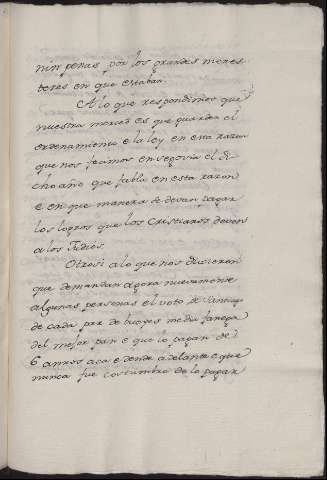 nin penas por los grandes menes-
teres en que estaban.
A lo que respondimos que
nuestra merced es que guarden el
ordenamiento e la ley en esta razon
que nos fecimos en segovia el di-
cho año que fabla en esta razon
e en que manera se devan pagar
los logros que los Cristianos deven
a los Judios.
Otrosi a lo que nos dixeron
que demandan agora nuevamente
algunas personas el voto de Santiago
de cada par de bueyes media fanega
del mejor pan e que lo pagan de
6 annos aca e dende adelante e que
nunca fue costumbre de lo pagar